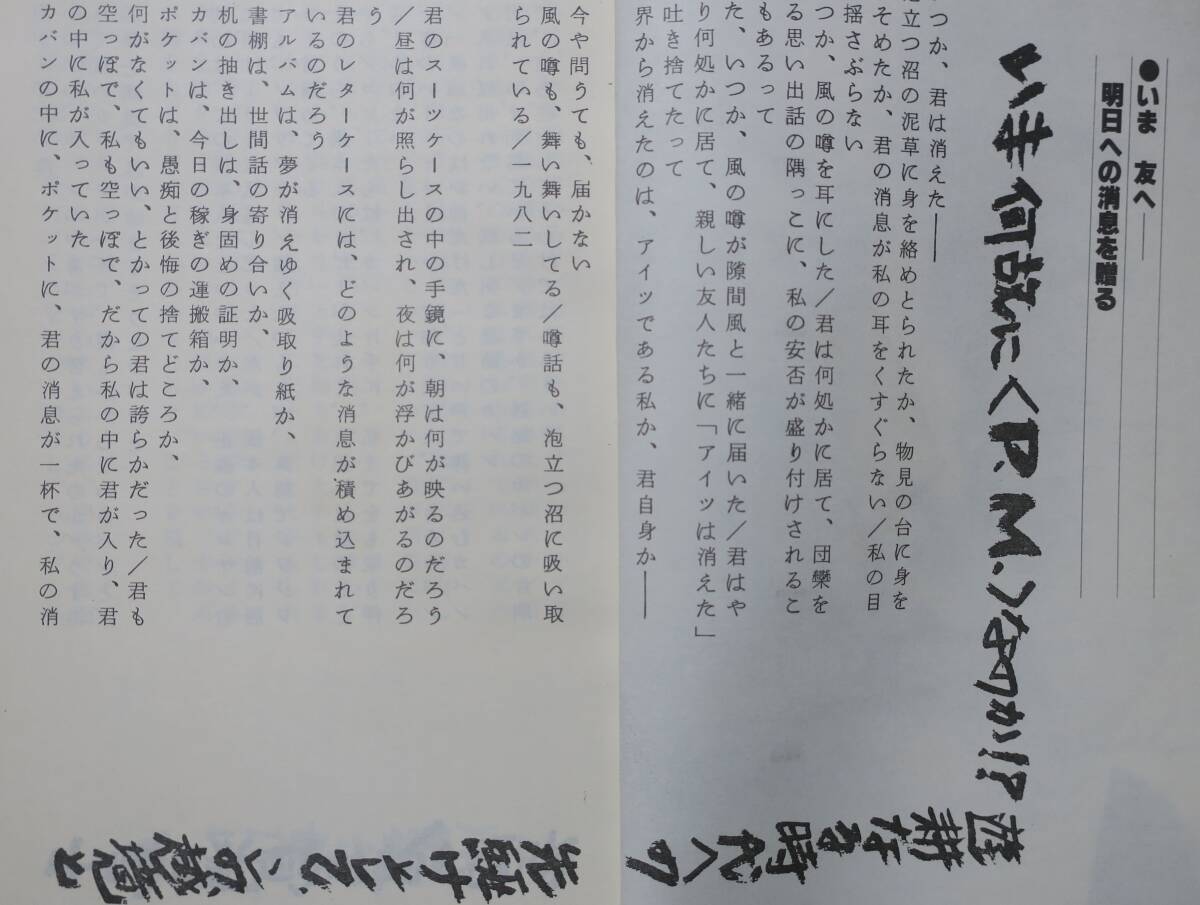 ●いま 友へ――
明日への消息を贈る
いま何故に〈P.M.〉なのか!?
つか、君は消えた――
立つ沼の泥草に身を絡めとられたか、物見の台に身を
そめたか、君の消息が私の耳をくすぐらない/私の目
揺さぶらない
つか、風の噂を耳にした/君は何処かに居て、団欒を
る思い出話の隅っこに、私の安否が盛り付けされるこ
もあるって
た、いつか、風の噂が隙間風と一緒に届いた/君はや
り何処かに居て、親しい友人たちに「アイツは消えた」
吐き捨てたって
界から消えたのは、アイツである私か、君自身か――
遊耕なる時代への
今や問うても、届かない
風の噂も、舞い舞いしてる/噂話も、泡立つ沼に吸い取
られている/一九八二
君のスーツケースの中の手鏡に、朝は何が映るのだろう
/昼は何が照らし出され、夜は何が浮かびあがるのだろ
う
君のレターケースには、どのような消息が積め込まれて
いるのだろう
アルバムは、夢が消えゆく吸取り紙か、
書棚は、世間話の寄り合いか、
机の抽き出しは、身固めの証明か、
カバンは、今日の稼ぎの運搬箱か、
ポケットは、愚痴と後悔の捨てどころか、
何がなくてもいい、とかっての君は誇らかだった/君も
空っぽで、私も空っぽで、だから私の中に君が入り、君
の中に私が入っていた
カバンの中に、ポケットに、君の消息が一杯で、私の消
先駆けとして、この